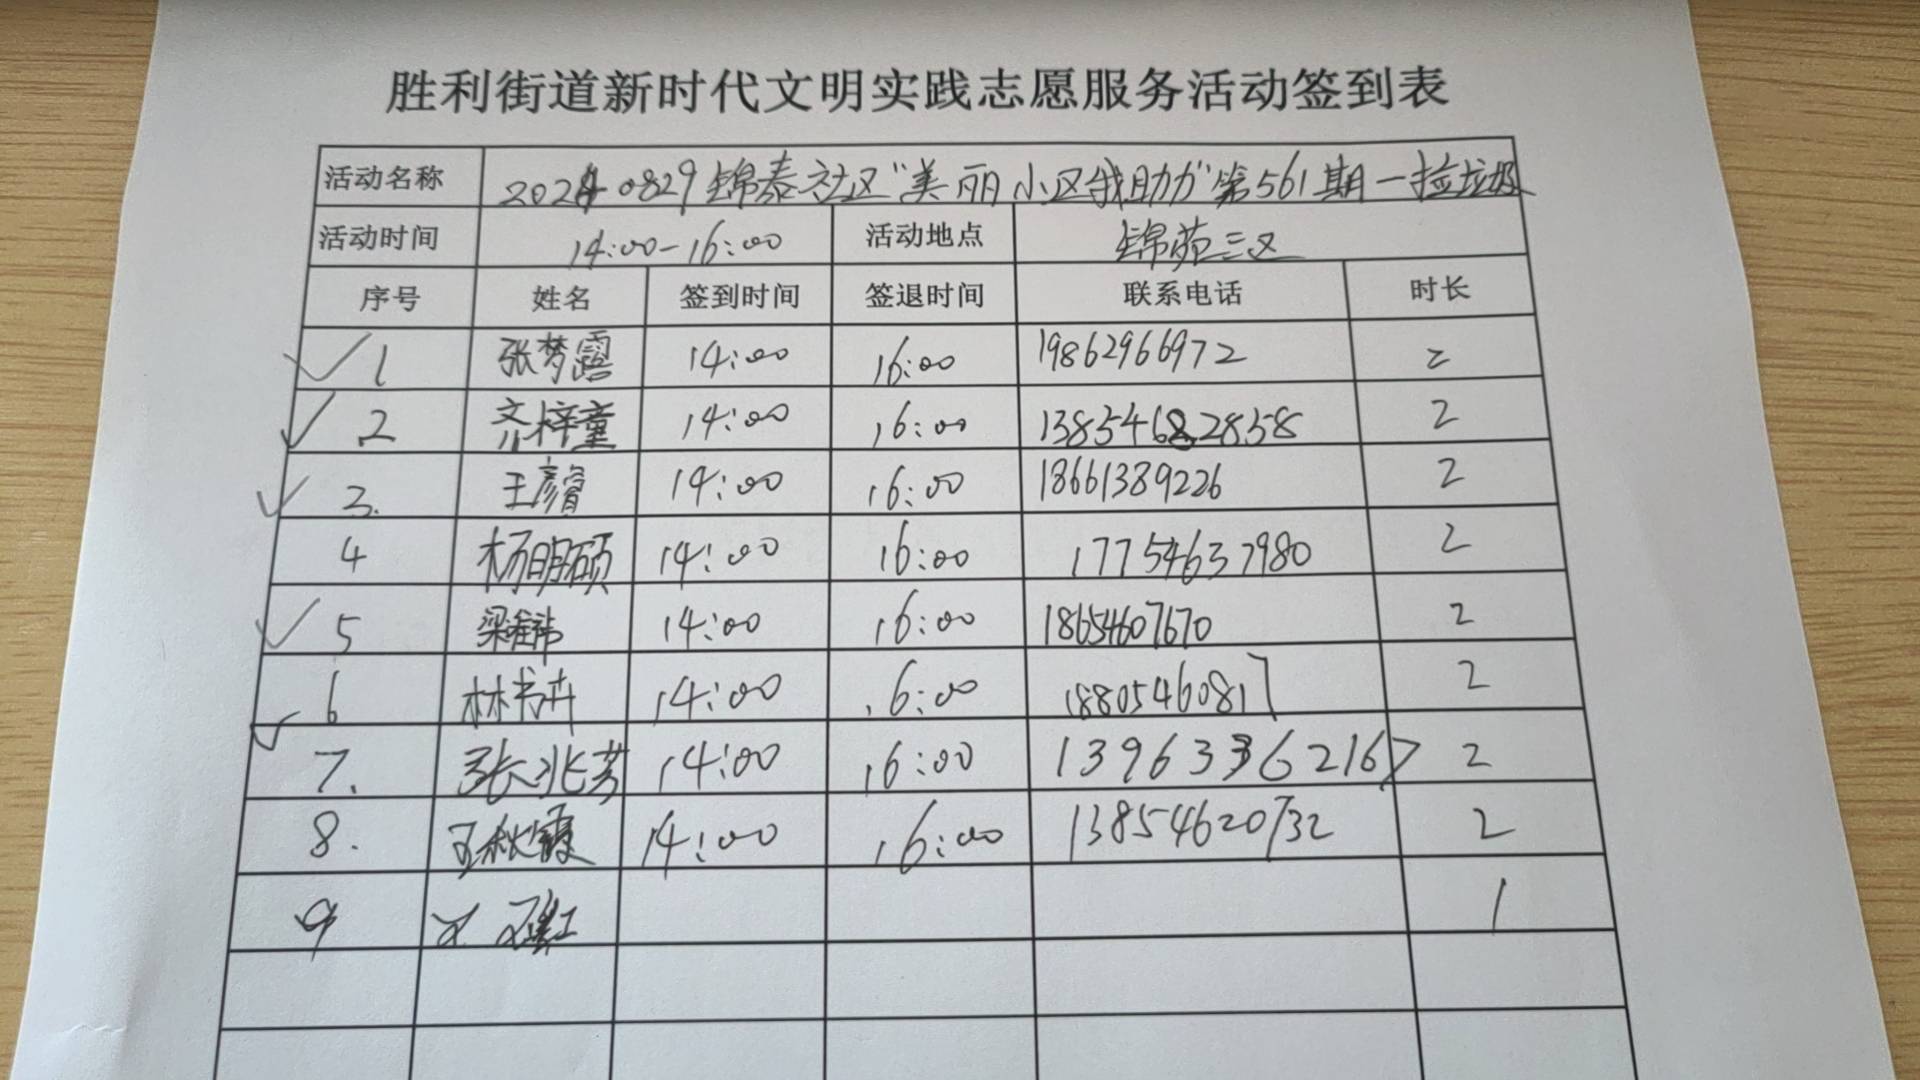 胜利街道新时代文明实践志愿服务活动签到表
活动名称 20240829锦泰社区“美丽小区我助力”第561期一捡垃圾
活动时间 14:00-16:00 活动地点 锦苑三区
序号 姓名 签到时间 签退时间 联系电话 时长
1 张梦露 14:00 16:00 19862966972 2
2 齐梓童 14:00 16:00 13854682858 2
3. 王彦睿 14:00 16:00 18661389226 2
4 杨明硕 14:00 16:00 17754637980 2
5 梁 14:00 16:00 18654607670 2
6 林书卉 14:00 16:00 18805460817 2
7. 张兆芳 14:00 16:00 13963362167 2
8. 王秋霞 14:00 16:00 13854620732 2
9 红 1